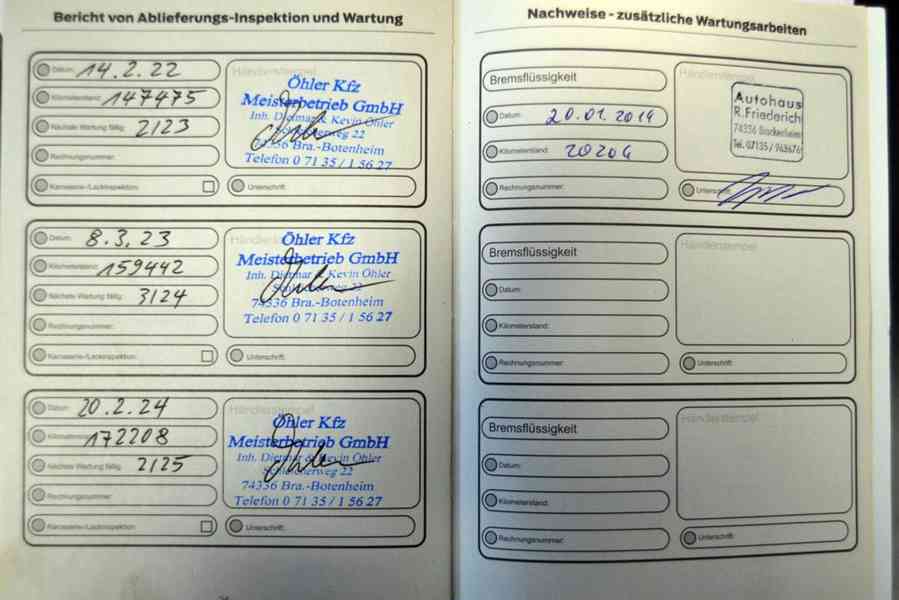 Bericht von Ablieferungs-Inspektion und Wartung
Datum: 14.2.22
Kilometerstand: 147475
Nächste Wartung fällig: 2/23
Rechnungsnummer:
Karosserie-/Lackinspektion:
Händlerstempel
Öhler Kfz
Meisterbetrieb GmbH
Inh. Dietmar & Kevin Öhler
22
74336 Bra.-Botenheim
Telefon 0 71 35 / 1 56 27
Unterschrift:
Datum: 8.3.23
Kilometerstand: 159442
Nächste Wartung fällig: 3/24
Rechnungsnummer:
Karosserie-/Lackinspektion:
Händlerstempel
Öhler Kfz
Meisterbetrieb GmbH
Inh. Dietmar & Kevin Öhler
22
74336 Bra.-Botenheim
Telefon 0 71 35 / 1 56 27
Unterschrift:
Datum: 20.2.24
Kilometerstand: 172208
Nächste Wartung fällig: 2/25
Rechnungsnummer:
Karosserie-/Lackinspektion:
Händlerstempel
Öhler Kfz
Meisterbetrieb GmbH
Inh. Dietmar & Kevin Öhler
22
74336 Bra.-Botenheim
Telefon 0 71 35 / 1 56 27
Unterschrift:
Nachweise - zusätzliche Wartungsarbeiten
Bremsflüssigkeit
Datum: 20.01.2014
Kilometerstand: 20204
Rechnungsnummer:
Händlerstempel
Autohaus
R. Friederich
74336 Brackenheim
Tel. 07135 / 963676
Unterschrift:
Bremsflüssigkeit
Datum:
Kilometerstand:
Rechnungsnummer:
Händlerstempel
Unterschrift:
Bremsflüssigkeit
Datum:
Kilometerstand:
Rechnungsnummer:
Händlerstempel
Unterschrift: